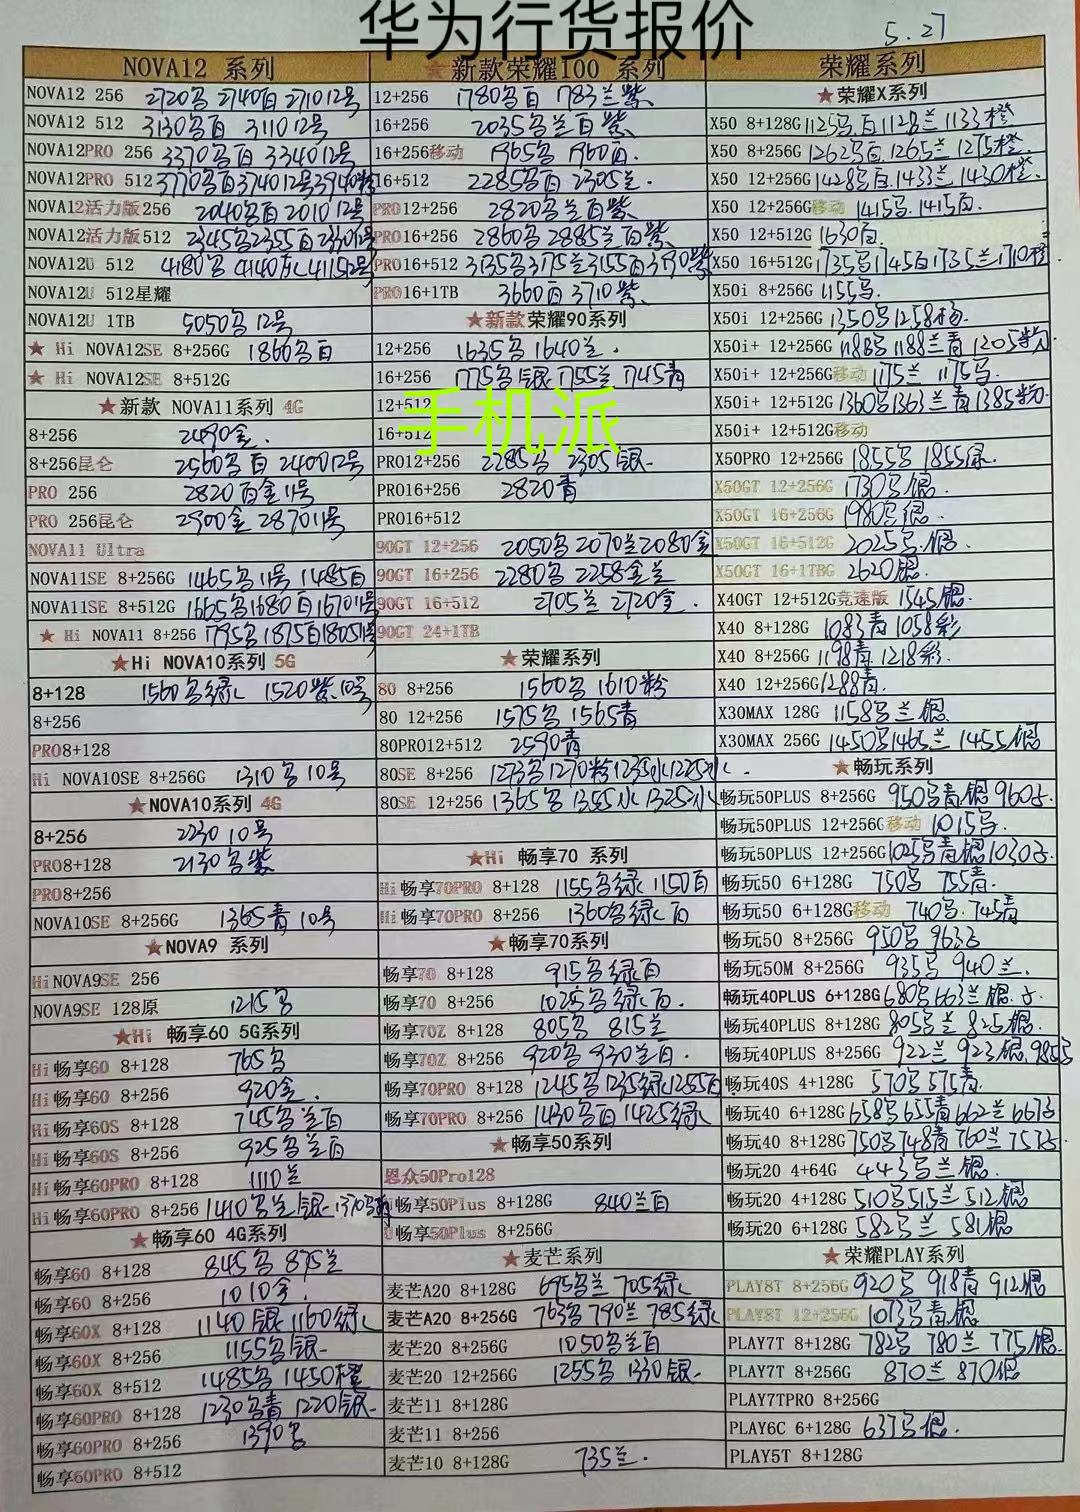 华为行货报价
5.27
NOVA12 系列
NOVA12 256 2720 2740白 2710 12号
NOVA12 512 3130 白 3110 12号
NOVA12PRO 256 3370 白 3340 12号
NOVA12PRO 512 3770 白 3740 12号 3940粉
NOVA12活力版256 2040 白 2010 12号
NOVA12活力版512 2345 2355白 2330 12号
NOVA12U 512 4180 4140 4115 12号
NOVA12U 512星耀
NOVA12U 1TB 5050 12号
★ Hi NOVA12SE 8+256G 1860 白
★ Hi NOVA12SE 8+512G
★新款 NOVA11系列 4G
8+256 2490金.
8+256昆仑 2560 白 2400 12号
PRO 256 2820 白金 11号
PRO 256昆仑 2900金 2870 11号
NOVA11 Ultra
NOVA11SE 8+256G 1465 11号 1485白
NOVA11SE 8+512G 1665 1680白 1670 11号
★ Hi NOVA11 8+256 1795 1875白 1805 11号
★Hi NOVA10系列 5G
8+128 1560 绿 1520紫 10号
8+256
PRO8+128
Hi NOVA10SE 8+256G 1310 10号
★NOVA10系列 4G
8+256 2230 10号
PRO8+128 2130 紫
PRO8+256
NOVA10SE 8+256G 1365青 10号
★NOVA9 系列
Hi NOVA9SE 256
NOVA9SE 128原 1215
★Hi 畅享60 5G系列
Hi 畅享60 8+128 765
Hi 畅享60 8+256 920金.
Hi 畅享60S 8+128 745 兰白
Hi 畅享60S 8+256 925 兰白
Hi 畅享60PRO 8+128 1110兰
Hi 畅享60PRO 8+256 1410 兰银 1370
★畅享60 4G系列
畅享60 8+128 845 875兰
畅享60 8+256 1010金.
畅享60X 8+128 1140银 1160绿
畅享60X 8+256 1155 银
畅享60X 8+512 1485 1450橙
畅享60PRO 8+128 1230 青 1220银
畅享60PRO 8+256 1390
畅享60PRO 8+512
★新款荣耀100 系列
12+256 1780 白 1783兰紫
16+256 2035 兰白紫
16+256移动 1965 1960白.
16+512 2285 白 2305兰.
PRO12+256 2820 兰白紫
PRO16+256 2860 2885兰白紫
PRO16+512 3135 3175兰 3155白 3190紫
PRO16+1TB 3660白 3710紫
★新款荣耀90系列
12+256 1635 1640兰.
16+256 1775 银 1755兰 1745青
12+512
手机派
16+512
PRO12+256 2285 2305银
PRO16+256 2820青
PRO16+512
90GT 12+256 2050 2070兰 2080金
90GT 16+256 2280 2258金兰
90GT 16+512 2705兰 2720金.
90GT 24+1TB
★荣耀系列
80 8+256 1560 1610粉
80 12+256 1575 1565青
80PRO12+512 2590青
80SE 8+256 1273 1270粉 1235 1225
80SE 12+256 1365 1355 1325
★Hi 畅享70 系列
Hi 畅享70PRO 8+128 1155 绿 1150白
Hi 畅享70PRO 8+256 1360 绿 白
★畅享70系列
畅享70 8+128 915 绿白
畅享70 8+256 1025 绿白.
畅享70Z 8+128 805 815兰
畅享70Z 8+256 920 930兰白.
畅享70PRO 8+128 1245 1235绿 1255白
畅享70PRO 8+256 1430 白 1425绿
★畅享50系列
恩众50Pro128
畅享50Plus 8+128G 840兰白
畅享50Plus 8+256G
★麦芒系列
麦芒A20 8+128G 695 兰 705绿
麦芒A20 8+256G 763 790兰 785绿
麦芒20 8+256G 1050 兰白
麦芒20 12+256G 1255 1330银
麦芒11 8+128G
麦芒11 8+256
麦芒10 8+128G 735兰.
荣耀系列
★荣耀X系列
X50 8+128G 1125 白 1128兰 1133橙
X50 8+256G 1262 白 1265兰 1275橙.
X50 12+256G 1428 白 1433兰 1430橙.
X50 12+256G移动 1415 1415白.
X50 12+512G 1630白.
X50 16+512G 1735 1745白 1735兰 1710橙
X50i 8+256G 1155
X50i 12+256G 1350 1258
X50i+ 12+256G 1188 1188兰青 1205粉
X50i+ 12+256G移动 1175兰 1175
X50i+ 12+512G 1360 1363兰青 1385粉
X50i+ 12+512G移动
X50PRO 12+256G 1855 1855绿.
X50GT 12+256G 1730 银.
X50GT 16+256G 1980 银.
X50GT 16+512G 2025 银.
X50GT 16+1TBG 2620银.
X40GT 12+512G竞速版 1545银.
X40 8+128G 1083青 1058彩
X40 8+256G 1198青 1218彩.
X40 12+256G 1288青.
X30MAX 128G 1158 兰银
X30MAX 256G 1450 1465兰 1455银
★畅玩系列
畅玩50PLUS 8+256G 950 青银 960
畅玩50PLUS 12+256G移动 1015
畅玩50PLUS 12+256G 1025 青银 1030
畅玩50 6+128G 750 755青.
畅玩50 6+128G移动 740 745青
畅玩50 8+256G 950 963
畅玩50M 8+256G 935 940兰.
畅玩40PLUS 6+128G 680 663兰银
畅玩40PLUS 8+128G 805 兰 825银.
畅玩40PLUS 8+256G 922兰 923银 985
畅玩40S 4+128G 570 575青.
畅玩40 6+128G 658 655青 662兰 667
畅玩40 8+128G 750 748青 760兰 753
畅玩20 4+64G 443 兰银.
畅玩20 4+128G 510 515兰 512银
畅玩20 6+128G 582 兰 581银
★荣耀PLAY系列
PLAY8T 8+256G 920 918青 912银
PLAY8T 12+256G 1073 青银
PLAY7T 8+128G 782 780兰 775银.
PLAY7T 8+256G 870兰 870银
PLAY7TPRO 8+256G
PLAY6C 6+128G 637 银.
PLAY5T 8+128G